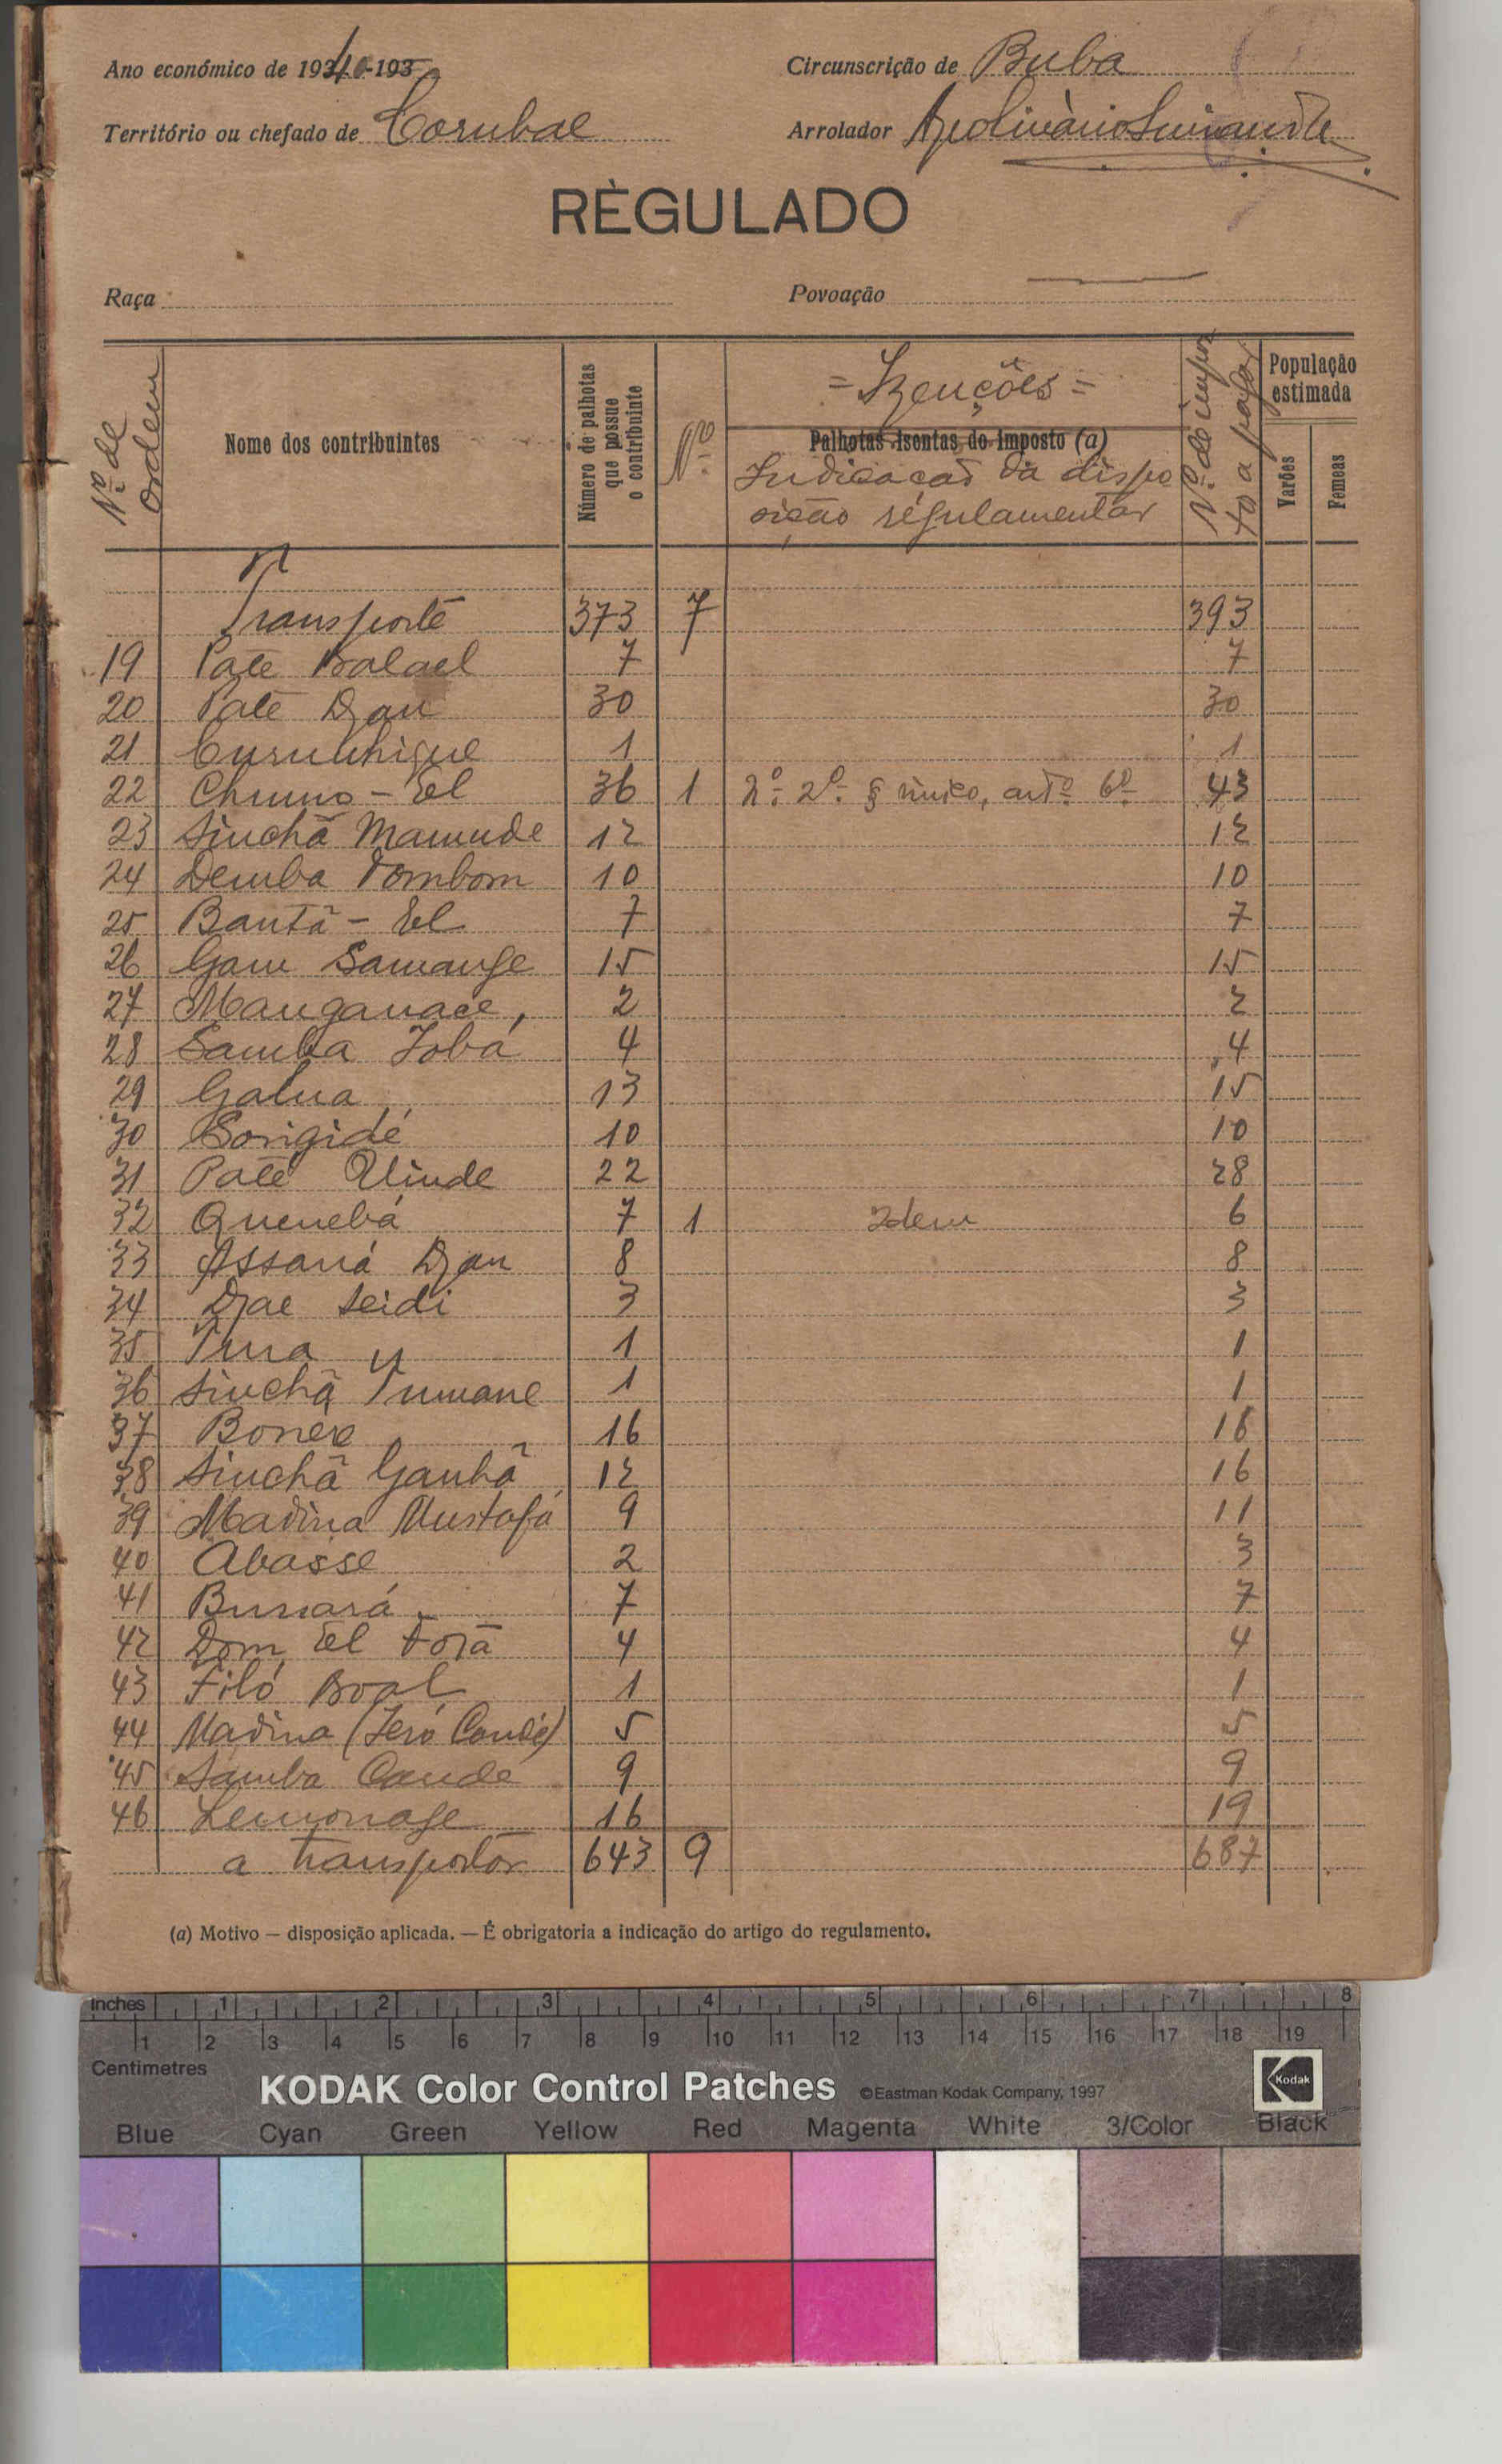 Ano económico de 1940-193
Circunscrição de Buba
Território ou chefado de Corubal
Arrolador Apolinàrio
RÈGULADO
Raça
Povoação
Nº de ordem
Nome dos contribuintes
Número de palhotas que possue o contribuinte
Nº
= Izenções =
Palhotas isentas do imposto (a)
Indicação da dispo
sição régulamentar
Nº de impos
to a pagar
População estimada
Varões
Femeas
Transporte 373 7 393
19 Paté Balael 7 7
20 Paté Djau 30 30
21 1 1
22 Chumo-El 36 1 nº 2º § único, artº 6º 43
23 Sinchã Mamude 12 12
24 Demba Tombom 10 10
25 Bantã-El 7 7
26 Gam Samange 15 15
27 Manganace 2 2
28 Samba Jobá 4 4
29 Galua 13 15
30 Sorigidé 10 10
31 Paté Uinde 22 28
32 Quenebá 7 1 Idem 6
33 Assaná Djau 8 8
34 Djae Seidi 3 3
35 1 1
36 Sinchã Tumane 1 1
37 16 16
38 Sinchã Ganhã 12 16
39 Madina Mustafá 9 11
40 Abasse 2 3
41 7 7
42 Dom El Torã 4 4
43 Filó Boal 1 1
44 Madina (Jeró Candé) 5 5
45 Samba Candé 9 9
46 Lemonage 16 19
a transportar 643 9 687
(a) Motivo — disposição aplicada. — É obrigatoria a indicação do artigo do regulamento.
Inches 1 2 3 4 5 6 7 8
1 2 3 4 5 6 7 8 9 10 11 12 13 14 15 16 17 18 19
Centimetres
KODAK Color Control Patches ©Eastman Kodak Company, 1997 Kodak
Blue Cyan Green Yellow Red Magenta White 3/Color Black